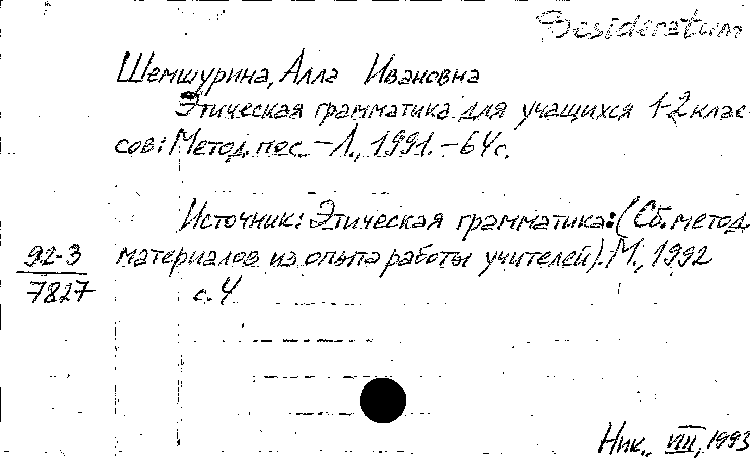 Desideratum
Шемшурина, Алла Ивановна
Этическая грамматика для учащихся 1-2 клас-
сов: Метод. пос. - Л., 1991. - 64 с.
Источник: Этическая грамматика: (Сб. метод.
92-3 материалов из опыта работы учителей). М., 1992
7827 с. 4
Ник., VIII, 1993